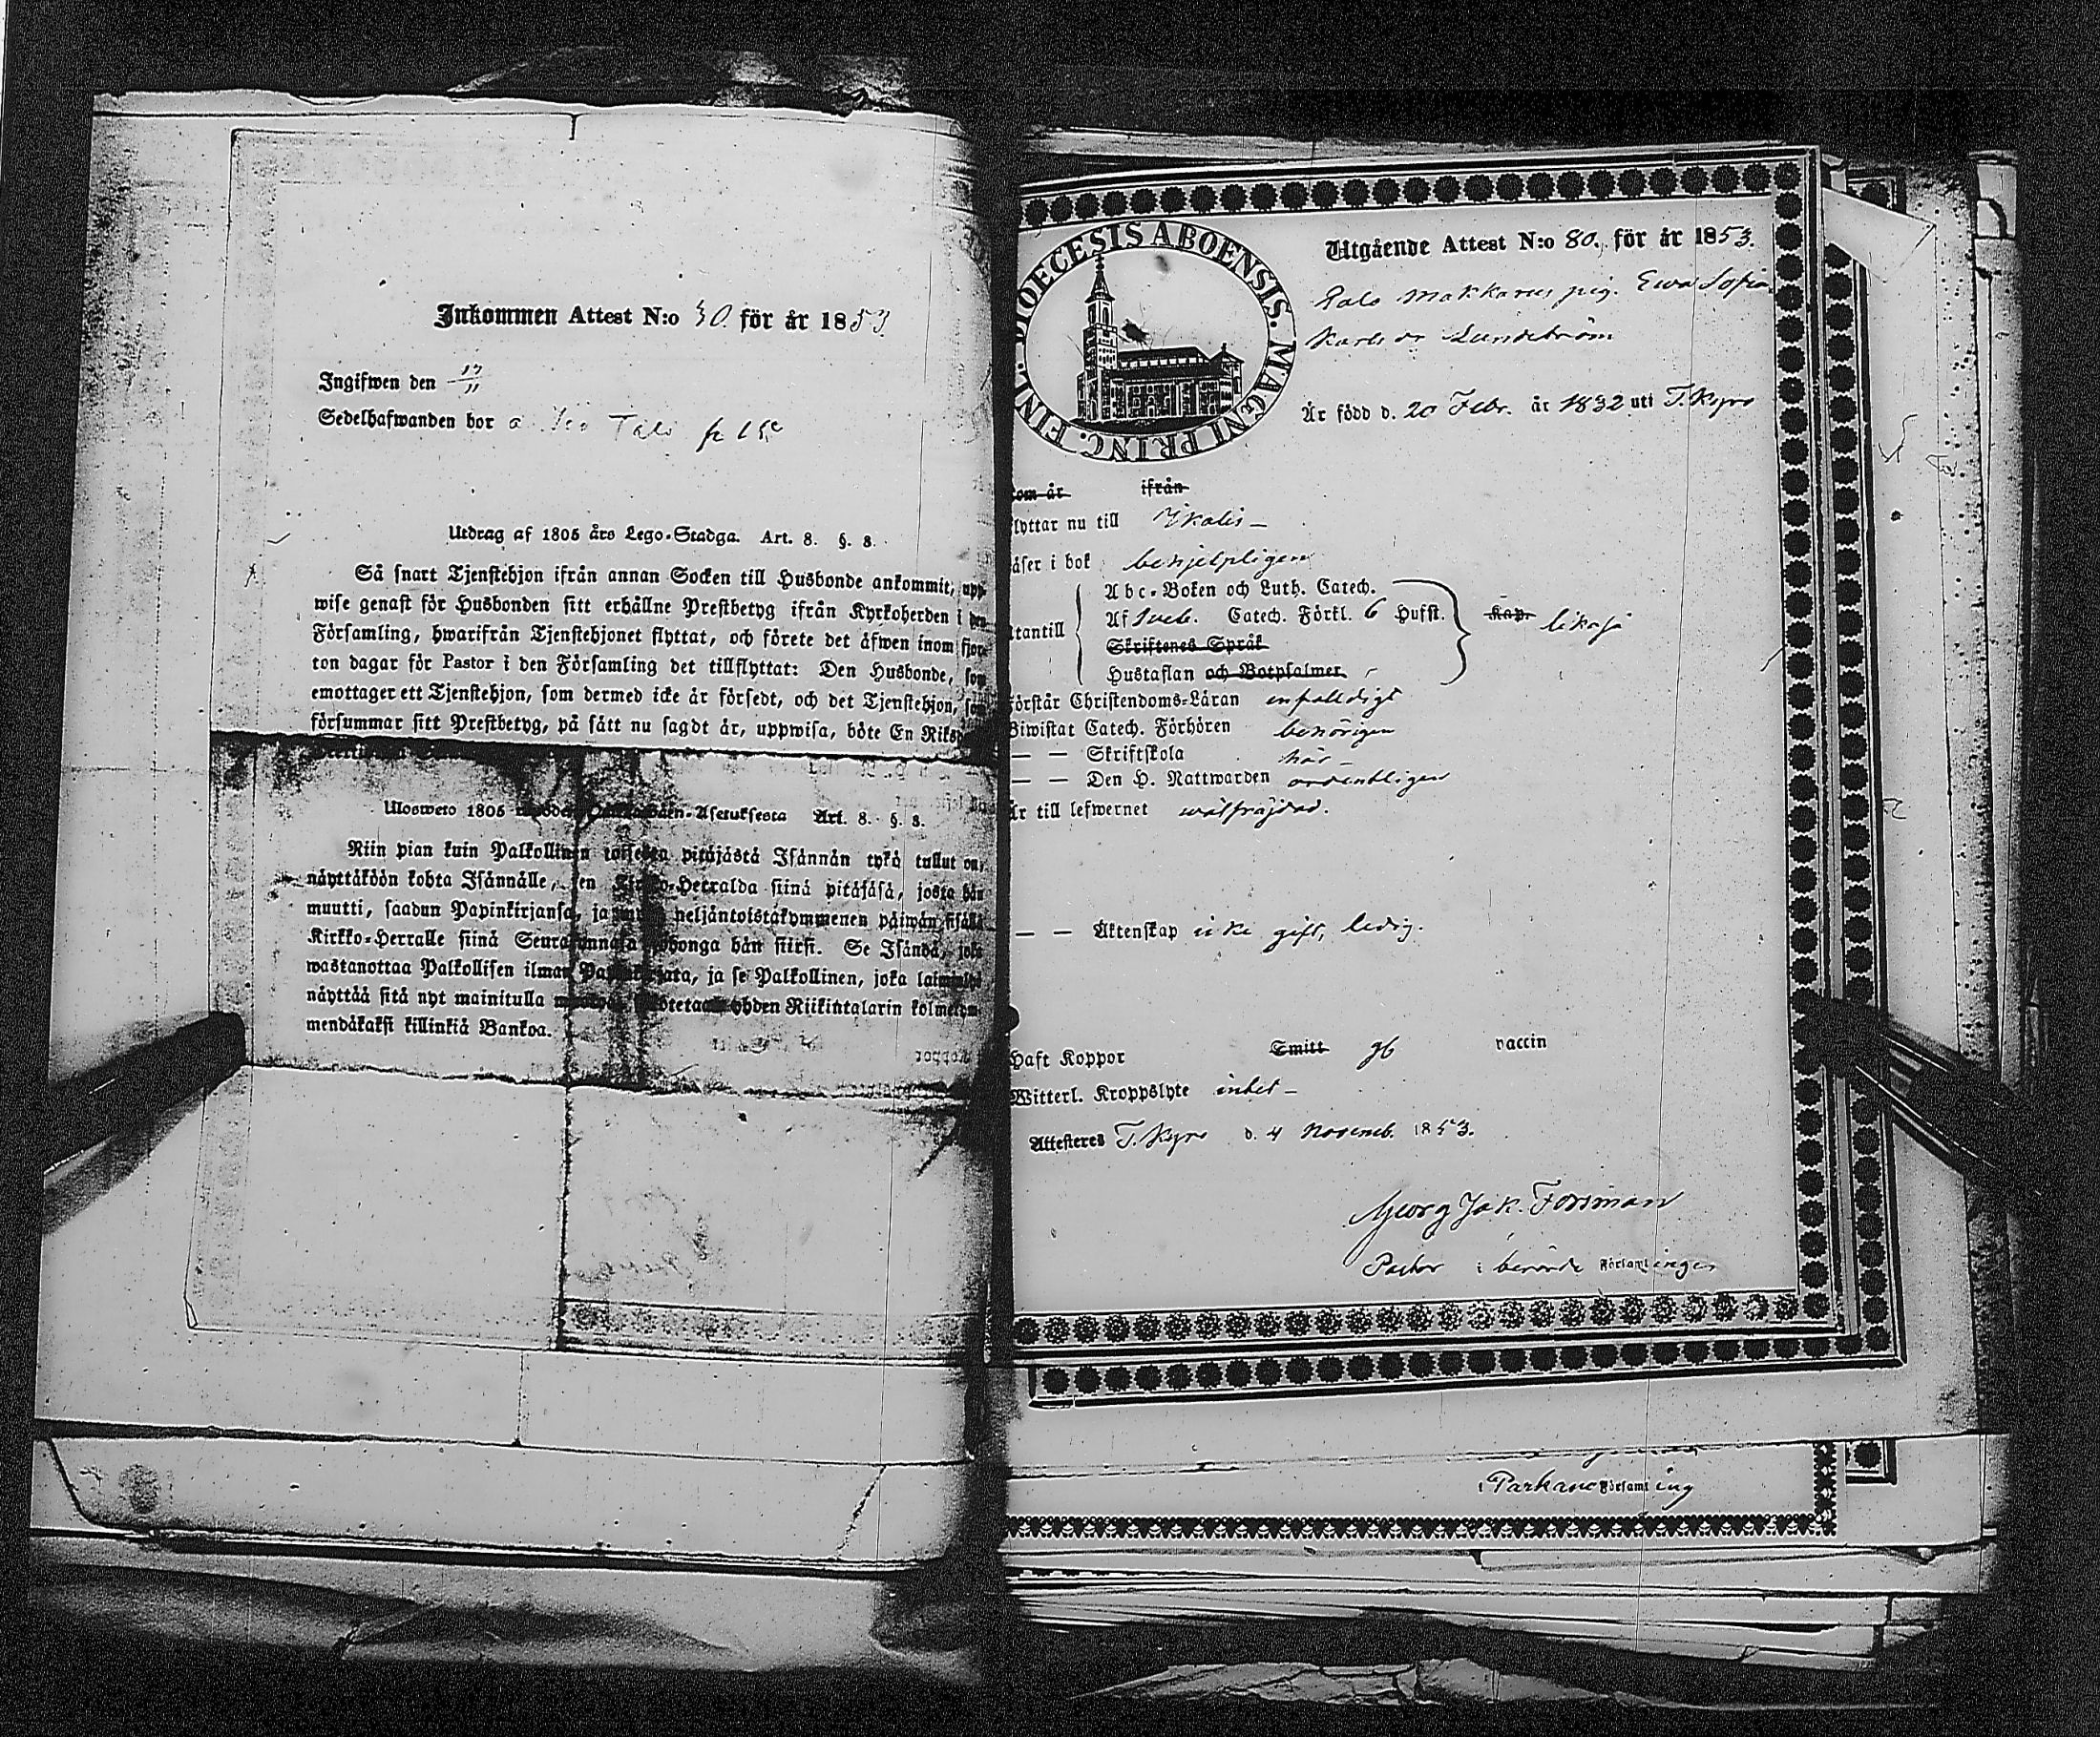 Inkommen Attest N:o 30. för år 1853
Ingifwen den 17/11
Sedelhafwanden bor
Utdrag af 1805 års Lego-Stadga. Art. 8. §. 8.
Så snart Tjenstehjon ifrån annan Socken till Husbonde ankommit, upp-
wise genast för Husbonden sitt erhållne Prestbetyg ifrån Kyrkoherden i
Församling, hwarifrån Tjenstehjonet flyttat, och förete det äfwen inom fjor-
ton dagar för Pastor i den Församling det tillflyttat: Den Husbonde, som
emottager ett Tjenstehjon, som dermed icke är försedt, och det Tjenstehjon, som
försummar sitt Prestbetyg, på sätt nu sagdt är, uppwisa, böte En Riksd
Uloswето 1805 Asetuksesta Art. 8. §. 8.
Niin pian kuin Palkollinen toisesta pitäjästä Isännän tykö tullut on,
näyttäköön kohta Isännälle, sen Kirkko-Herralda siinä pitäjäsä, josta hän
muutti, saadun Papinkirjansa, ja neljäntoistakymmenen päiwän sisällä
Kirkko-Herralle siinä Seurakunnasa hän siirsi. Se Isändä, joka
wastanottaa Palkollisen ilman Papinkirjata, ja se Palkollinen, joka
näyttää sitä nyt mainitulla yhden Riikintalarin kolmekym-
mendäkaksi killinkiä Bankoa.
DIOECESIS ABOENSIS. MAGNI PRINC. FINL.
Utgående Attest N:o 80. för år 1853.
pig. Ewa Sofia
Karls dr Lundström
Är född d. 20 Febr. år 1832 uti T. Kyro
kom år ifrån
flyttar nu till Ikalis
läser i bok behjelpligen
Abc-Boken och Luth. Catech.
Af Sveb. Catech. Förkl. 6 Hufst. Kap. likaså
utantill
Skriftenes Språk
Hustaflan och Botpsalmer
Förstår Christendoms-Läran enfalldigt
Biwistat Catech. Förhören behörigen
— — Skriftskola här
— — Den H. Nattwarden ordentligen
Är till lefwernet wälfräjdad.
— — Äktenskap icke gift, ledig.
Haft Koppor Smitt gb vaccin
Witterl. Kroppslyte intet
Attesteres T. Kyro d. 4 Novemb. 1853.
Georg Jak. Forsman
Pastor i berörde Församlingen
i Parkano Församling